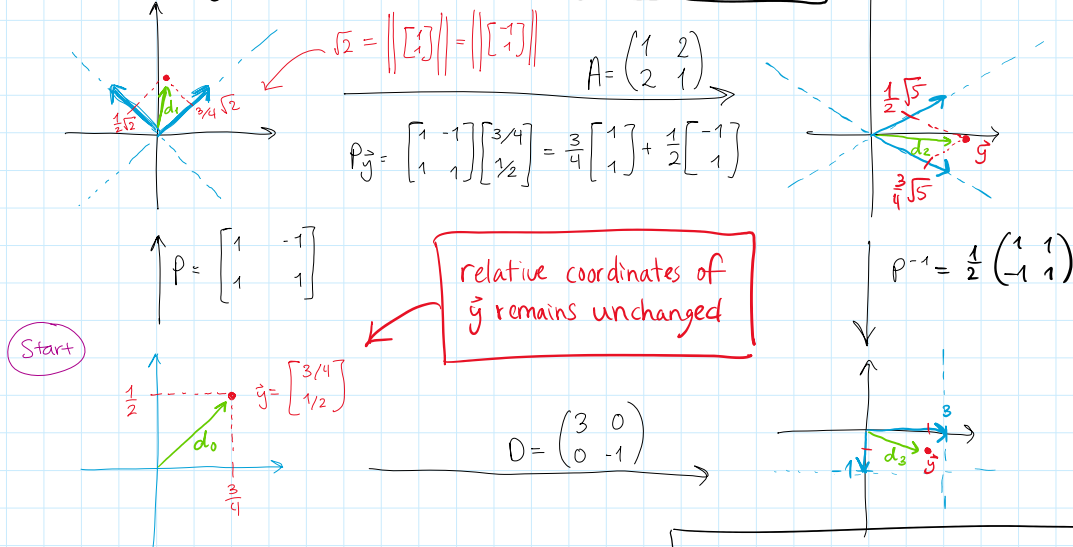 √2 = ‖[1 1]‖ = ‖[-1 1]‖
A = (1 2
2 1)
1/2 √2
d₁
3/4 √2
Pỹ = [1 -1 [3/4 = 3/4 [1 + 1/2 [-1
1 1] 1/2] 1] 1]
1/2 √5
d₂
y⃗
3/4 √5
P = [1 -1
1 1]
relative coordinates of
y⃗ remains unchanged
P⁻¹ = 1/2 (1 1
-1 1)
Start
1/2
y⃗ = [3/4
1/2]
d₀
3/4
D = (3 0
0 -1)
3
-1
d₃
y⃗